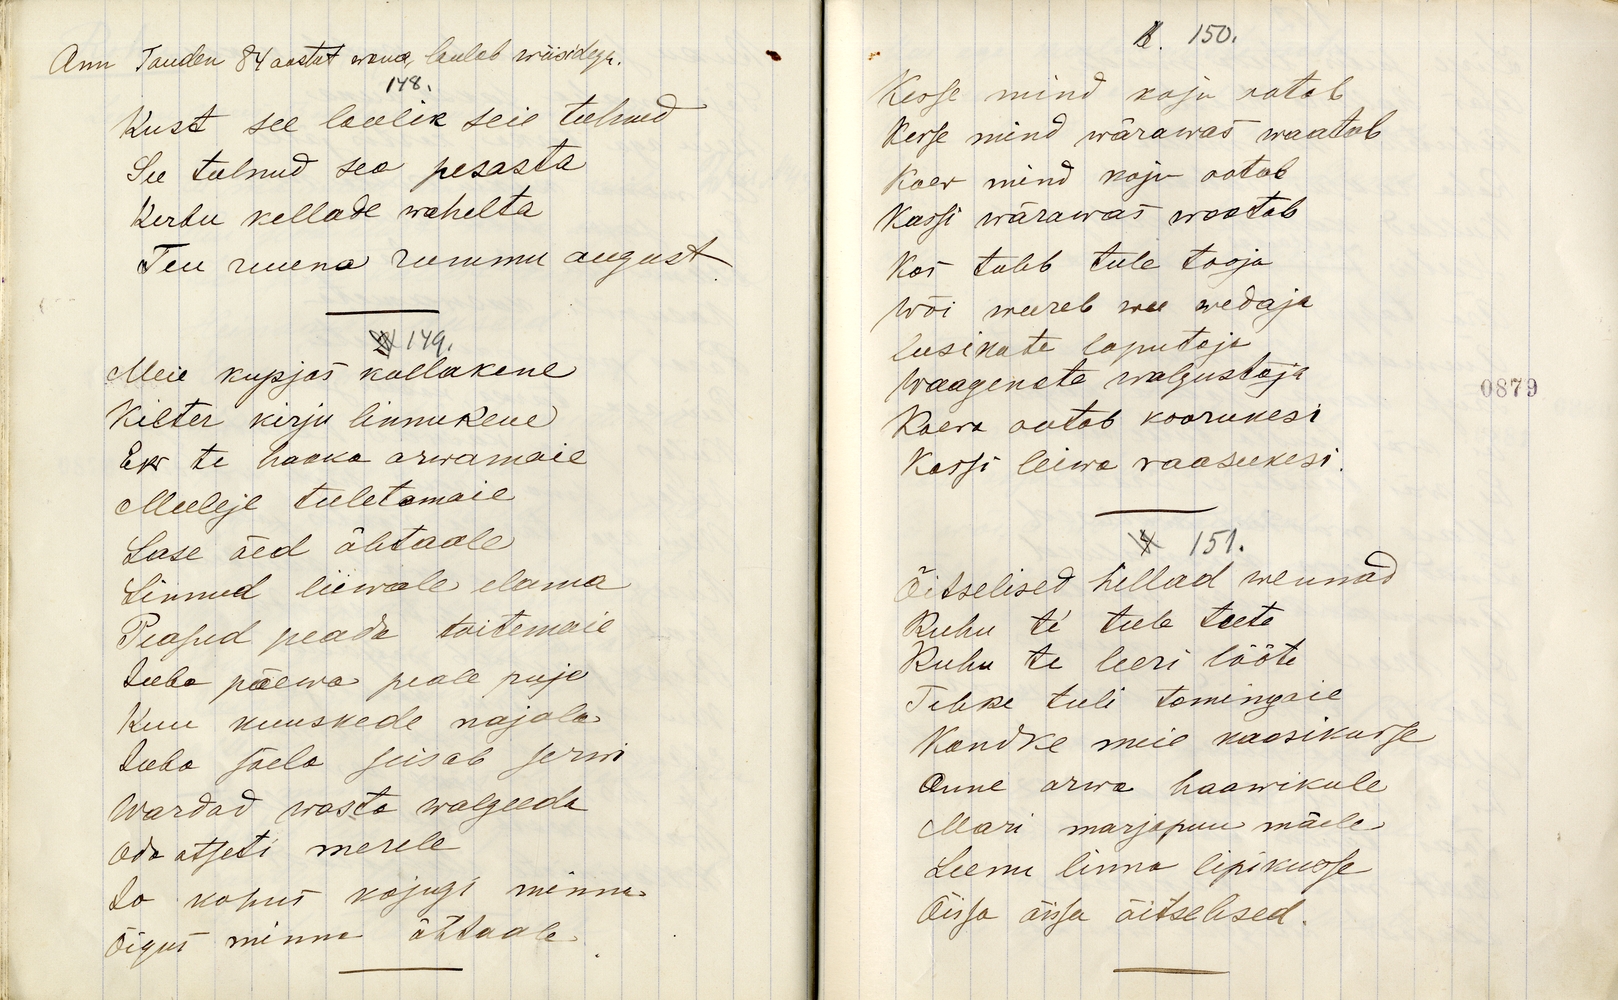 Ann Tauden 84 aastat wana, laulab wiisidega.
148.
Kust see laulik seie tulnud
See tulnud sea pesasta
Kerbu kellade wahelta
Teu ruuna rummu august
149.
Meie kupjas kullakene
Kilter kirju linnukene
Eks te hakka arwamaie
Meeleje tuletamaie
Lase äed õhtaale
Linnud liiwale elama
Peasud peada toitemaie
Juba päewa peale puije
Kuu kuuskede najala
Juba jõela seisab serwi
Wardad wasta walgeeda
Oda otseti merele
Jo kohus kojugi minna
Õigus minna õhtaale.
150.
Kesse mind koju ootab
Kesse mind wärawas waatab
Koer mind koju ootab
Kassi wärawas waatab
Kas tuleb tule tooja
Wõi weereb wee wedaja
lusikate loputaja
Waagenate walgustaja
Koera ootab koorukesi
Kassi leiwa raasukesi.
0879
151.
Õitselised hellad wennad
Kuhu te tule teete
Kuhu te leeri lööte
Tehke tuli tomingaie
Kandke meie kaasikusse
Anne arwa haawikule
Mari marjapuu mäele
Leenu linna lepikusse
Õissa õissa õitselised.